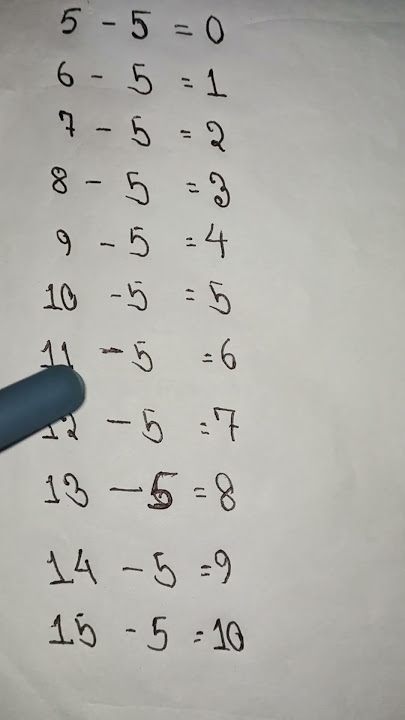 5 - 5 = 0
6 - 5 = 1
7 - 5 = 2
8 - 5 = 3
9 - 5 = 4
10 - 5 = 5
11 - 5 = 6
12 - 5 = 7
13 - 5 = 8
14 - 5 = 9
15 - 5 = 10